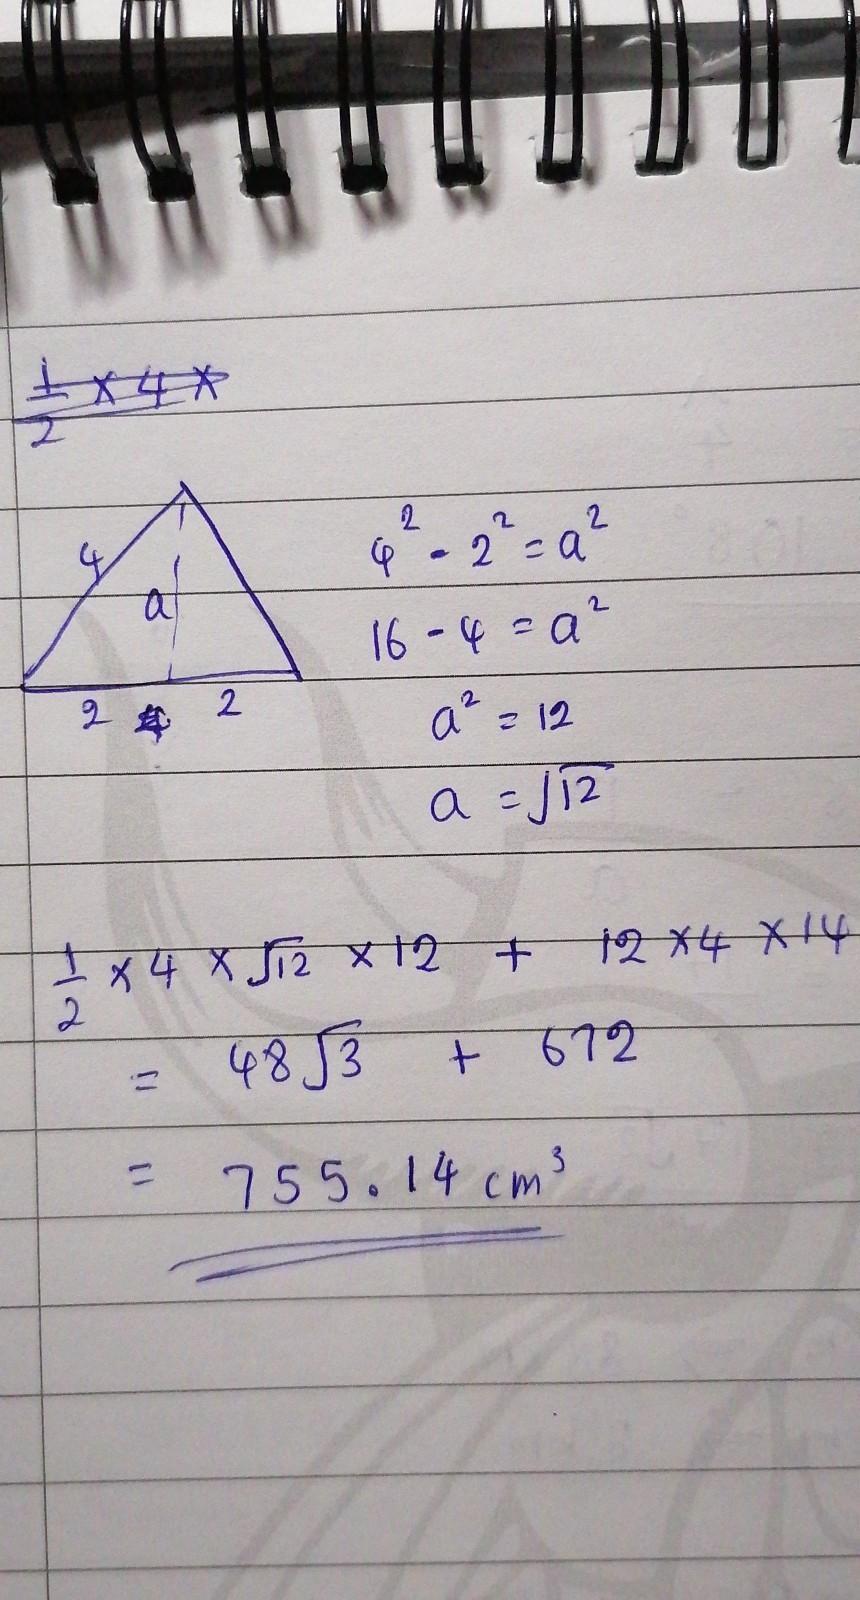 1/2 × 4 ×
4
a
2 4 2
4² - 2² = a²
16 - 4 = a²
a² = 12
a = √12
1/2 × 4 × √12 × 12 + 12 × 4 × 14
= 48√3 + 672
= 755.14 cm³